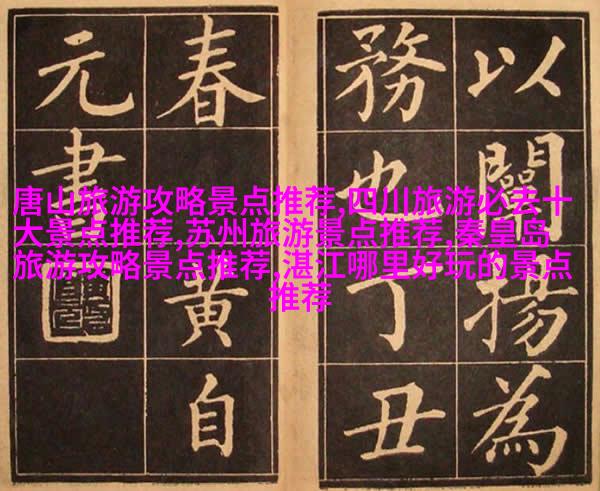 以闡揚為
務也丁丑
春黃自
元書
唐山旅游攻略景点推荐,四川旅游必去十
大景点推荐,苏州旅游景点推荐,秦皇岛
旅游攻略景点推荐,湛江哪里好玩的景点
推荐